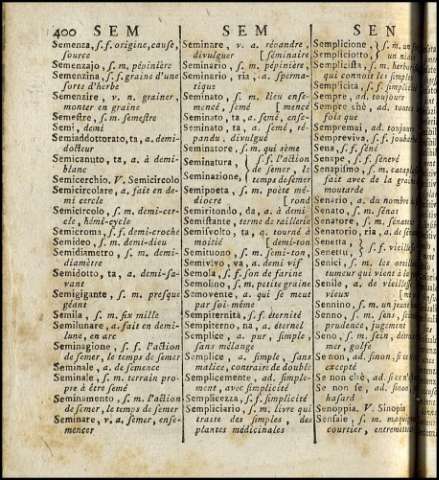 400 SEM
Semenza, s. f. origine, cause,
source
Semenzajo, s. m. pépinière
Semenzina, s. f. graine d'une
sorte d'herbe
Semenzire, v. n. grainer,
monter en graine
Semestre, s. m. semestre
Semi, demi
Semiaddottorato, ta, a. demi-
docteur
Semicanuto, ta, a. à demi-
blanc
Semicerchio, V. Semicircolo
Semicircolare, a. fait en de-
mi cercle
Semicircolo, s. m. demi-cer-
cle, hémi-cycle
Semicroma, s. f. demi-croche
Semideo, s. m. demi-dieu
Semidiametro, s. m. demi-
diamètre
Semidotto, ta, a. demi-sa-
vant
Semigigante, s. m. presque
géant
Semila, s. m. six mille
Semilunare, a. fait en demi-
lune, en arc
Seminagione, s. f. l'action
de semer, le temps de semer
Seminale, a. de semence
Seminale, s. m. terrain pro-
pre à être semé
Seminamento, s. m. l'action
de semer, le temps de semer
Seminare, v. a. semer, ense-
mencer
SEM
Seminare, v. a. répandre,
divulguer [séminaire
Seminario, s. m. pépinière,
Seminario, ria, a. sperma-
tique
Seminato, s. m. lieu ense-
mencé, semé [mencé
Seminato, ta, a. semé, ense-
Seminato, ta, a. semé, ré-
pandu, divulgué
Seminatore, s. m. qui sème
Seminatura, } s. f. l'action
Seminazione, } de semer, le
temps de semer
Semipoeta, s. m. poëte mé-
diocre [rond
Semiritondo, da, a. à demi-
Semistante, terme de raillerie
Semisvolto, ta, a. tourné à
moitié [demi-ton
Semituono, s. m. semi-ton,
Semivivo, va, a. demi vif
Semola, s. f. son de farine
Semolino, s. m. petite graine
Semovente, a. qui se meut
par soi-même
Sempiternità, s. f. éternité
Sempiterno, na, a. éternel
Semplice, a. pur, simple,
sans mélange
Semplice, a. simple, sans
malice, contraire de double
Semplicemente, ad. simple-
ment, avec simplicité
Semplicezza, s. f. simplicité
Sempliciario, s. m. livre qui
traite des simples, des
plantes médicinales
SEN
Semplicione, } s. m. un
Sempliciotto, } un niais
Semplicista, s. m. herboriste
qui connoit les simples
Semplicità, s. f. simplicité
Sempre, ad. toujours
Sempre chè, ad. toutes
fois que
Sempremai, ad. toujours
Sempreviva, s. f. joubarbe
Sena, s. f. séné
Senape, s. f. sénevé
Senapismo, s. m. cataplasme
fait avec de la graine
moutarde
Senario, a. du nombre
Senato, s. m. sénat
Senatore, s. m. sénateur
Senatorio, ria, a. de
Senetta, } s. f. vieillesse
Senettù, }
Senici, s. m. les
tumeur qui vient à
Senile, a. de vieillesse
vieux
Sennino, s. m. un jeune
Senno, s. m. sens,
prudence, jugement
Seno, s. m. sein,
mer, golfe
Se non, ad. sinon,
excepté
Se non chè, ad. si ce n'est
Se non se, ad. sinon
hasard
Senoppia, V. Sinopia
Sensale, s. m. maquignon
courtier, entremetteur